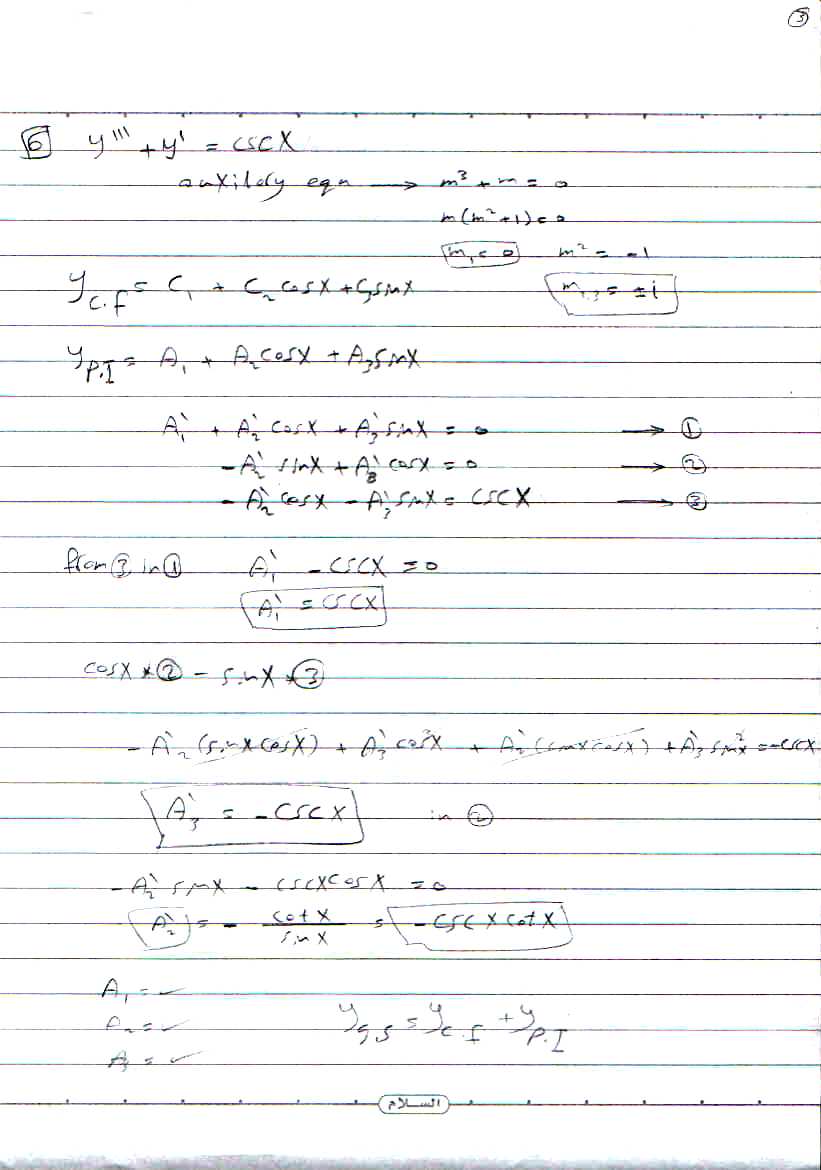 ③
6 y''' + y' = cscx
auxilary eqn → m³ + m = 0
m(m²+1) = 0
m₁ = 0 m² = -1
y_C.F = C₁ + C₂ cosx + C₃ sinx m₂,₃ = ±i
y_P.I = A₁ + A₂ cosx + A₃ sinx
A₁' + A₂' cosx + A₃' sinx = 0 → ①
-A₂' sinx + A₃' cosx = 0 → ②
-A₂' cosx - A₃' sinx = cscx → ③
from ③ in ① A₁' - cscx = 0
A₁' = cscx
cosx * ② - sinx * ③
-A₂' (sinxcosx) + A₃' cos²x + A₂' (sinxcosx) + A₃' sin²x = -cscx
A₃' = -cscx in ②
-A₂' sinx - cscxcosx = 0
A₂' = - cotx/sinx = -cscxcotx
A₁ = ✓
A₂ = ✓ y_G.S = y_C.F + y_P.I
A₃ = ✓
السلام